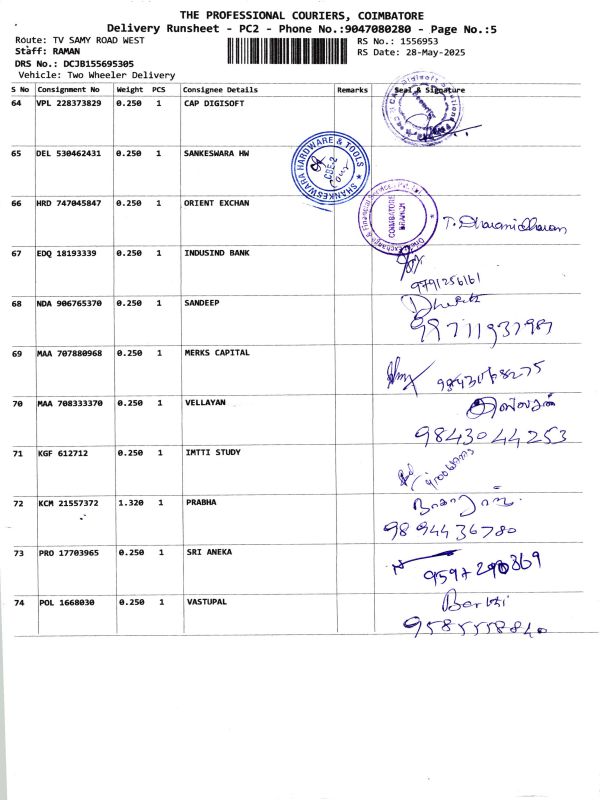 THE PROFESSIONAL COURIERS, COIMBATORE
Delivery Runsheet - PC2 - Phone No.:9047080280 - Page No.:5
Route: TV SAMY ROAD WEST
RS No.: 1556953
Staff: RAMAN
RS Date: 28-May-2025
DRS No.: DCJB155695305
Vehicle: Two Wheeler Delivery
S No Consignment No Weight PCS Consignee Details Remarks Seal & Signature
64 VPL 228373829 0.250 1 CAP DIGISOFT
65 DEL 530462431 0.250 1 SANKESWARA HW
SHANKESWARA HARDWARE & TOOLS
CBE-2
66 HRD 747045847 0.250 1 ORIENT EXCHAN
COIMBATORE
BRANCH
T. Dharanidharan
67 EDQ 18193339 0.250 1 INDUSIND BANK
9791256161
68 NDA 906765370 0.250 1 SANDEEP
69 MAA 707880968 0.250 1 MERKS CAPITAL
70 MAA 708333370 0.250 1 VELLAYAN
9843044253
71 KGF 612712 0.250 1 IMTTI STUDY
72 KCM 21557372 1.320 1 PRABHA
9894436780
73 PRO 17703965 0.250 1 SRI ANEKA
74 POL 1668030 0.250 1 VASTUPAL